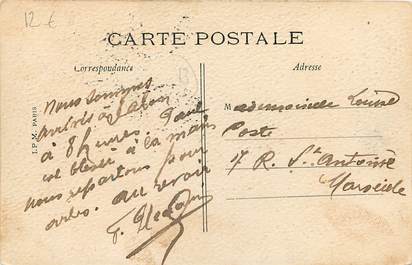 12 €
CARTE POSTALE
Correspondance
Adresse
I.P.M. PARIS
Nous sommes
à 8 heures. Paul
est blessé à la main
nous repartons pour
Arles. au revoir
Mademoiselle Louise
Poste
17 R. St Antoine
Marseille